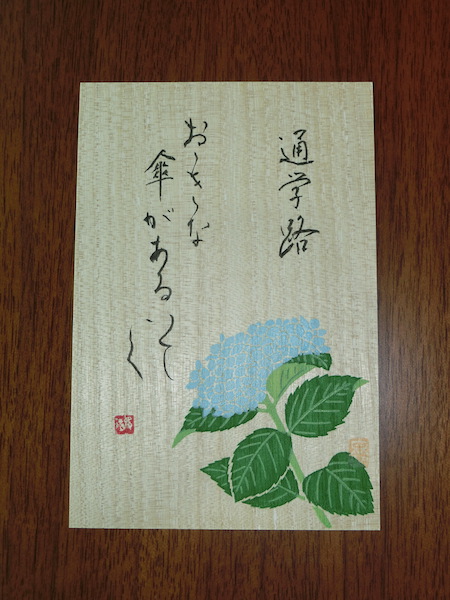 通学路
おゝきな
傘があるいて
く